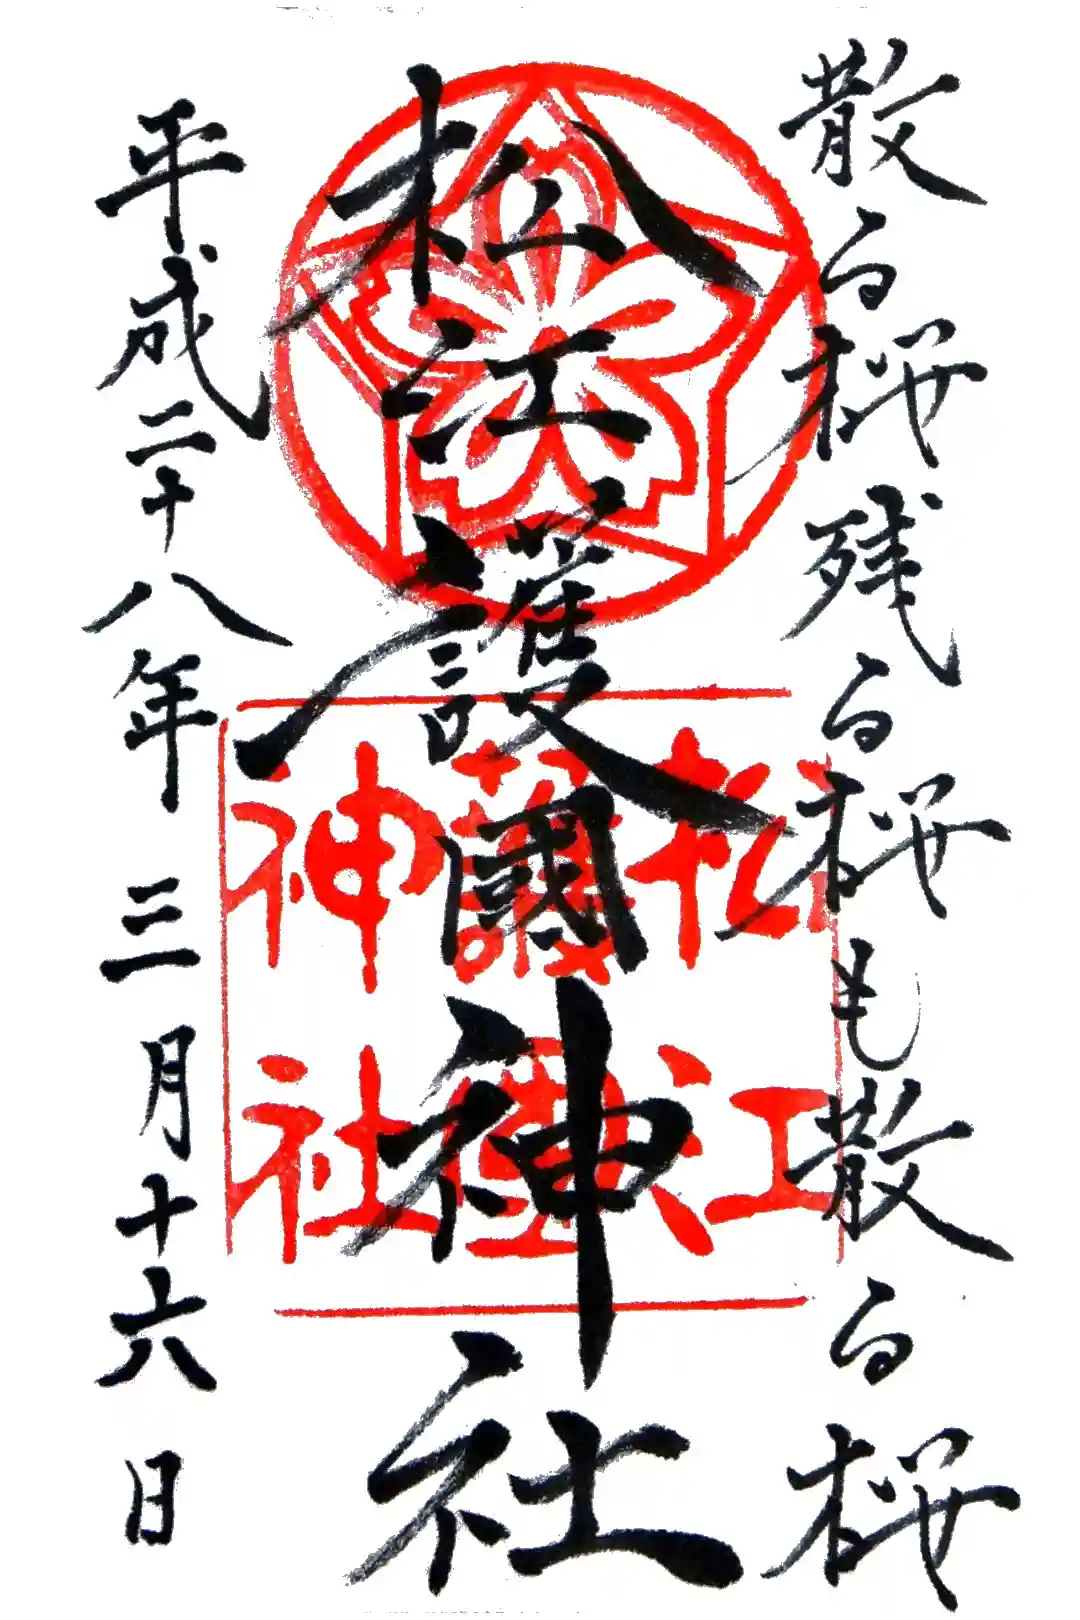 散る桜残る桜も散る桜
松江護國神社
平成二十八年三月十六日
松江
護國
神社